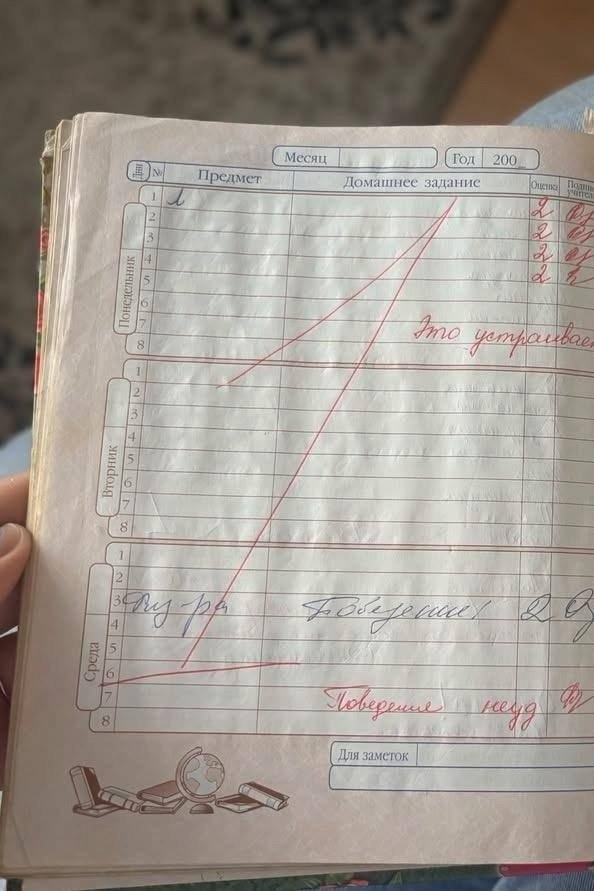 Месяц Год 200_
Дни № Предмет Домашнее задание Оценка
Понедельник
1 2
2 2
3 2
4 2
5
6
7
8
Это устраивает
Вторник
1
2
3
4
5
6
7
8
Среда
1
2
3 Физ ра 2
4
5
6
7 Поведение неуд
8
Для заметок